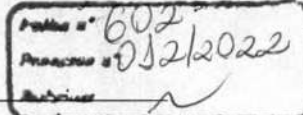 Folha nº 602
Processo nº 012/2022
Rubrica